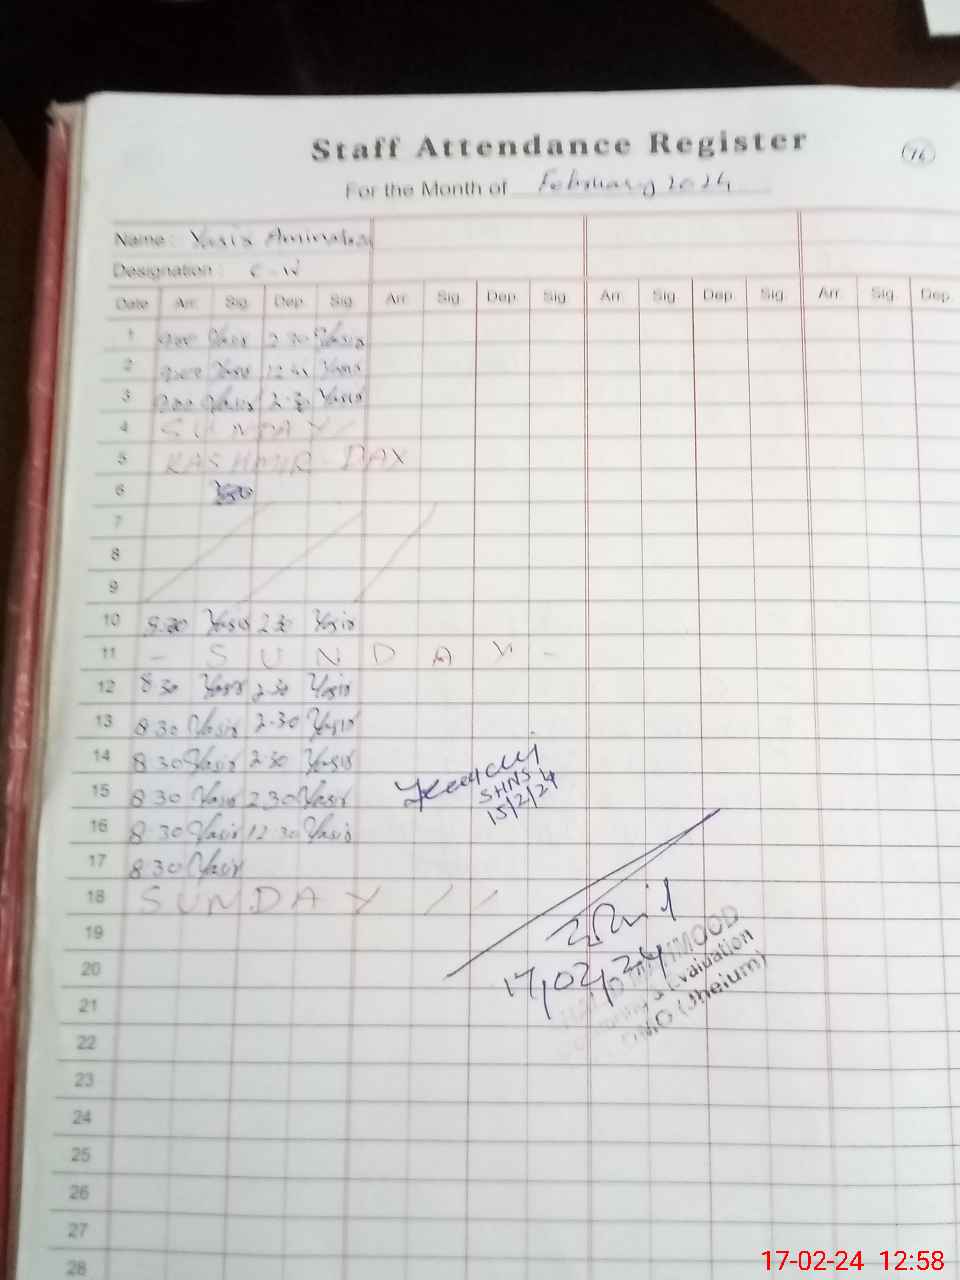 Staff Attendance Register
16
For the Month of February 2024
Name: Yasir
Designation: C-W
Date Arr. Sig. Dep. Sig. Arr. Sig. Dep. Sig. Arr. Sig. Dep. Sig. Arr. Sig. Dep.
1 9:00 Yasir 2 30 Yasir
2 9:00 Yasir Yasir
3 9:00 Yasir 2-30 Yasir
4 SUNDAY
5 KASHMIR-DAY
6
7
8
9
10 Yasir 2 30 Yasir
11 - SUNDAY -
12 8 30 Yasir 2 30 Yasir
13 8 30 Yasir 2-30 Yasir
14 8 30 Yasir 2 30 Yasir
15 8 30 Yasir 2 30 Yasir
SHNS
15/2/24
16 8 30 Yasir 12 30 Yasir
17 8 30 Yasir
18 SUNDAY
19
20
17/02/24
Evaluation
(Jhelum)
21
22
23
24
25
26
27
28
17-02-24 12:58